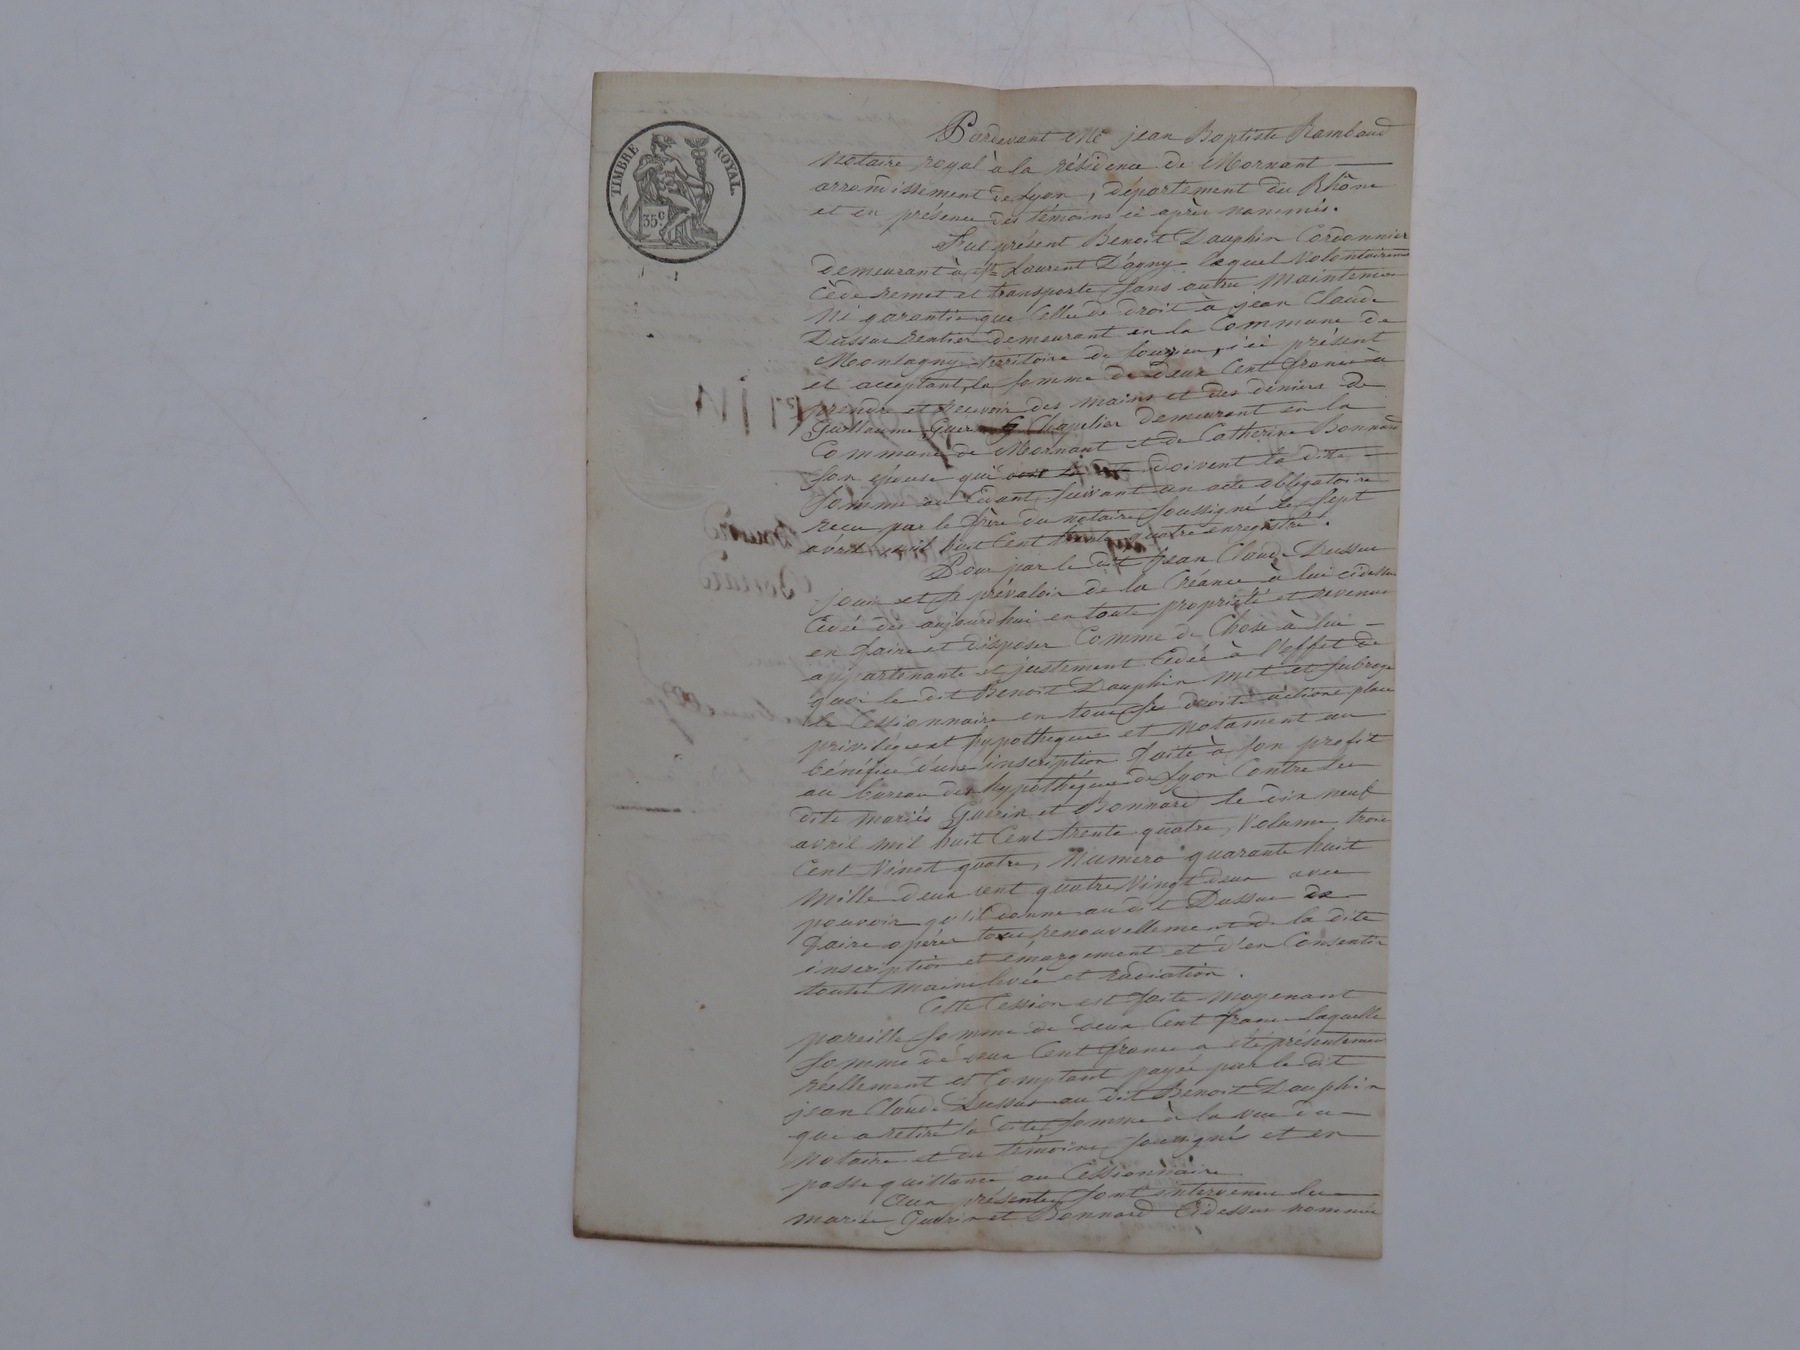 TIMBRE ROYAL.
35 c.
Pardevant Me jean Baptiste Rambaud
Notaire royal à la résidence de Mornant —
arrondissement de Lyon, département du Rhône
et en présence des témoins ci après nommés.
Fut présent Benoit Dauphin Cordonnier
demeurant à St Laurent D'agny lequel Volontairem
Cède remet et transporte sans autre Maintenue
Ni garantie que Celle de droit à jean Claude
Dussue Rentier demeurant en la Commune de
Montagny territoire de Sourzieu, ici présent
et acceptant, la somme de deux Cent francs à
prendre et recevoir des mains et des deniers de
Guillaume Guerin Chapelier demeurant en la
Commune de Mornant et de Catherine Bonnard
son épouse qui doivent la dite —
somme au Cédant suivant un acte obligatoire
recu par le frère du notaire soussigné le sept
avril mil huit Cent trente quatre enregistré.
Pour par le dit Jean Claude Dussue
jouir et se prévaloir de la Créance à lui cidessus
Cédée dès aujourd'hui en toute propriété et revenus
en faire et disposer Comme de Chose à lui —
appartenante et justement Cédée à l'effet de
quoi le dit Benoit Dauphin met et subroge
le Cessionnaire en tous ses droits actions place
privilèges et hypothèques et Notament au
bénéfice d'une inscription faite à son profit
au bureau des hypothèques de Lyon Contre les
dits mariés Guerin et Bonnard le dix neuf
avril mil huit Cent trente quatre, Volume trois
Cent Vingt quatre, Numero quarante huit
mille deux cent quatre Vingt deux avec
pouvoir qu'il donne au dit Dussue de
faire opérer tous renouvellement de la dite
inscription et émargement et d'en Consentir
toute mainlevée et radiation.
Cette Cession est faite moyenant
pareille somme de deux Cent francs laquelle
somme de deux Cent francs a été présentement
réellement et Comptant payée par le dit
jean Claude Dussue au dit Benoit Dauphin
qui a retiré la dite somme à la vue du —
Notaire et des témoins soussignés et en
passe quittance au Cessionnaire
Aux présentes sont intervenus les —
mariés Guerin et Bonnard Cidessus nommés